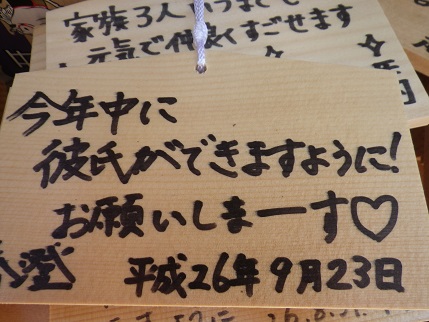 家族3人いつまでも
元気で仲良くすごせます
今年中に
彼氏ができますように!
お願いしまーす♡
澄 平成26年9月23日